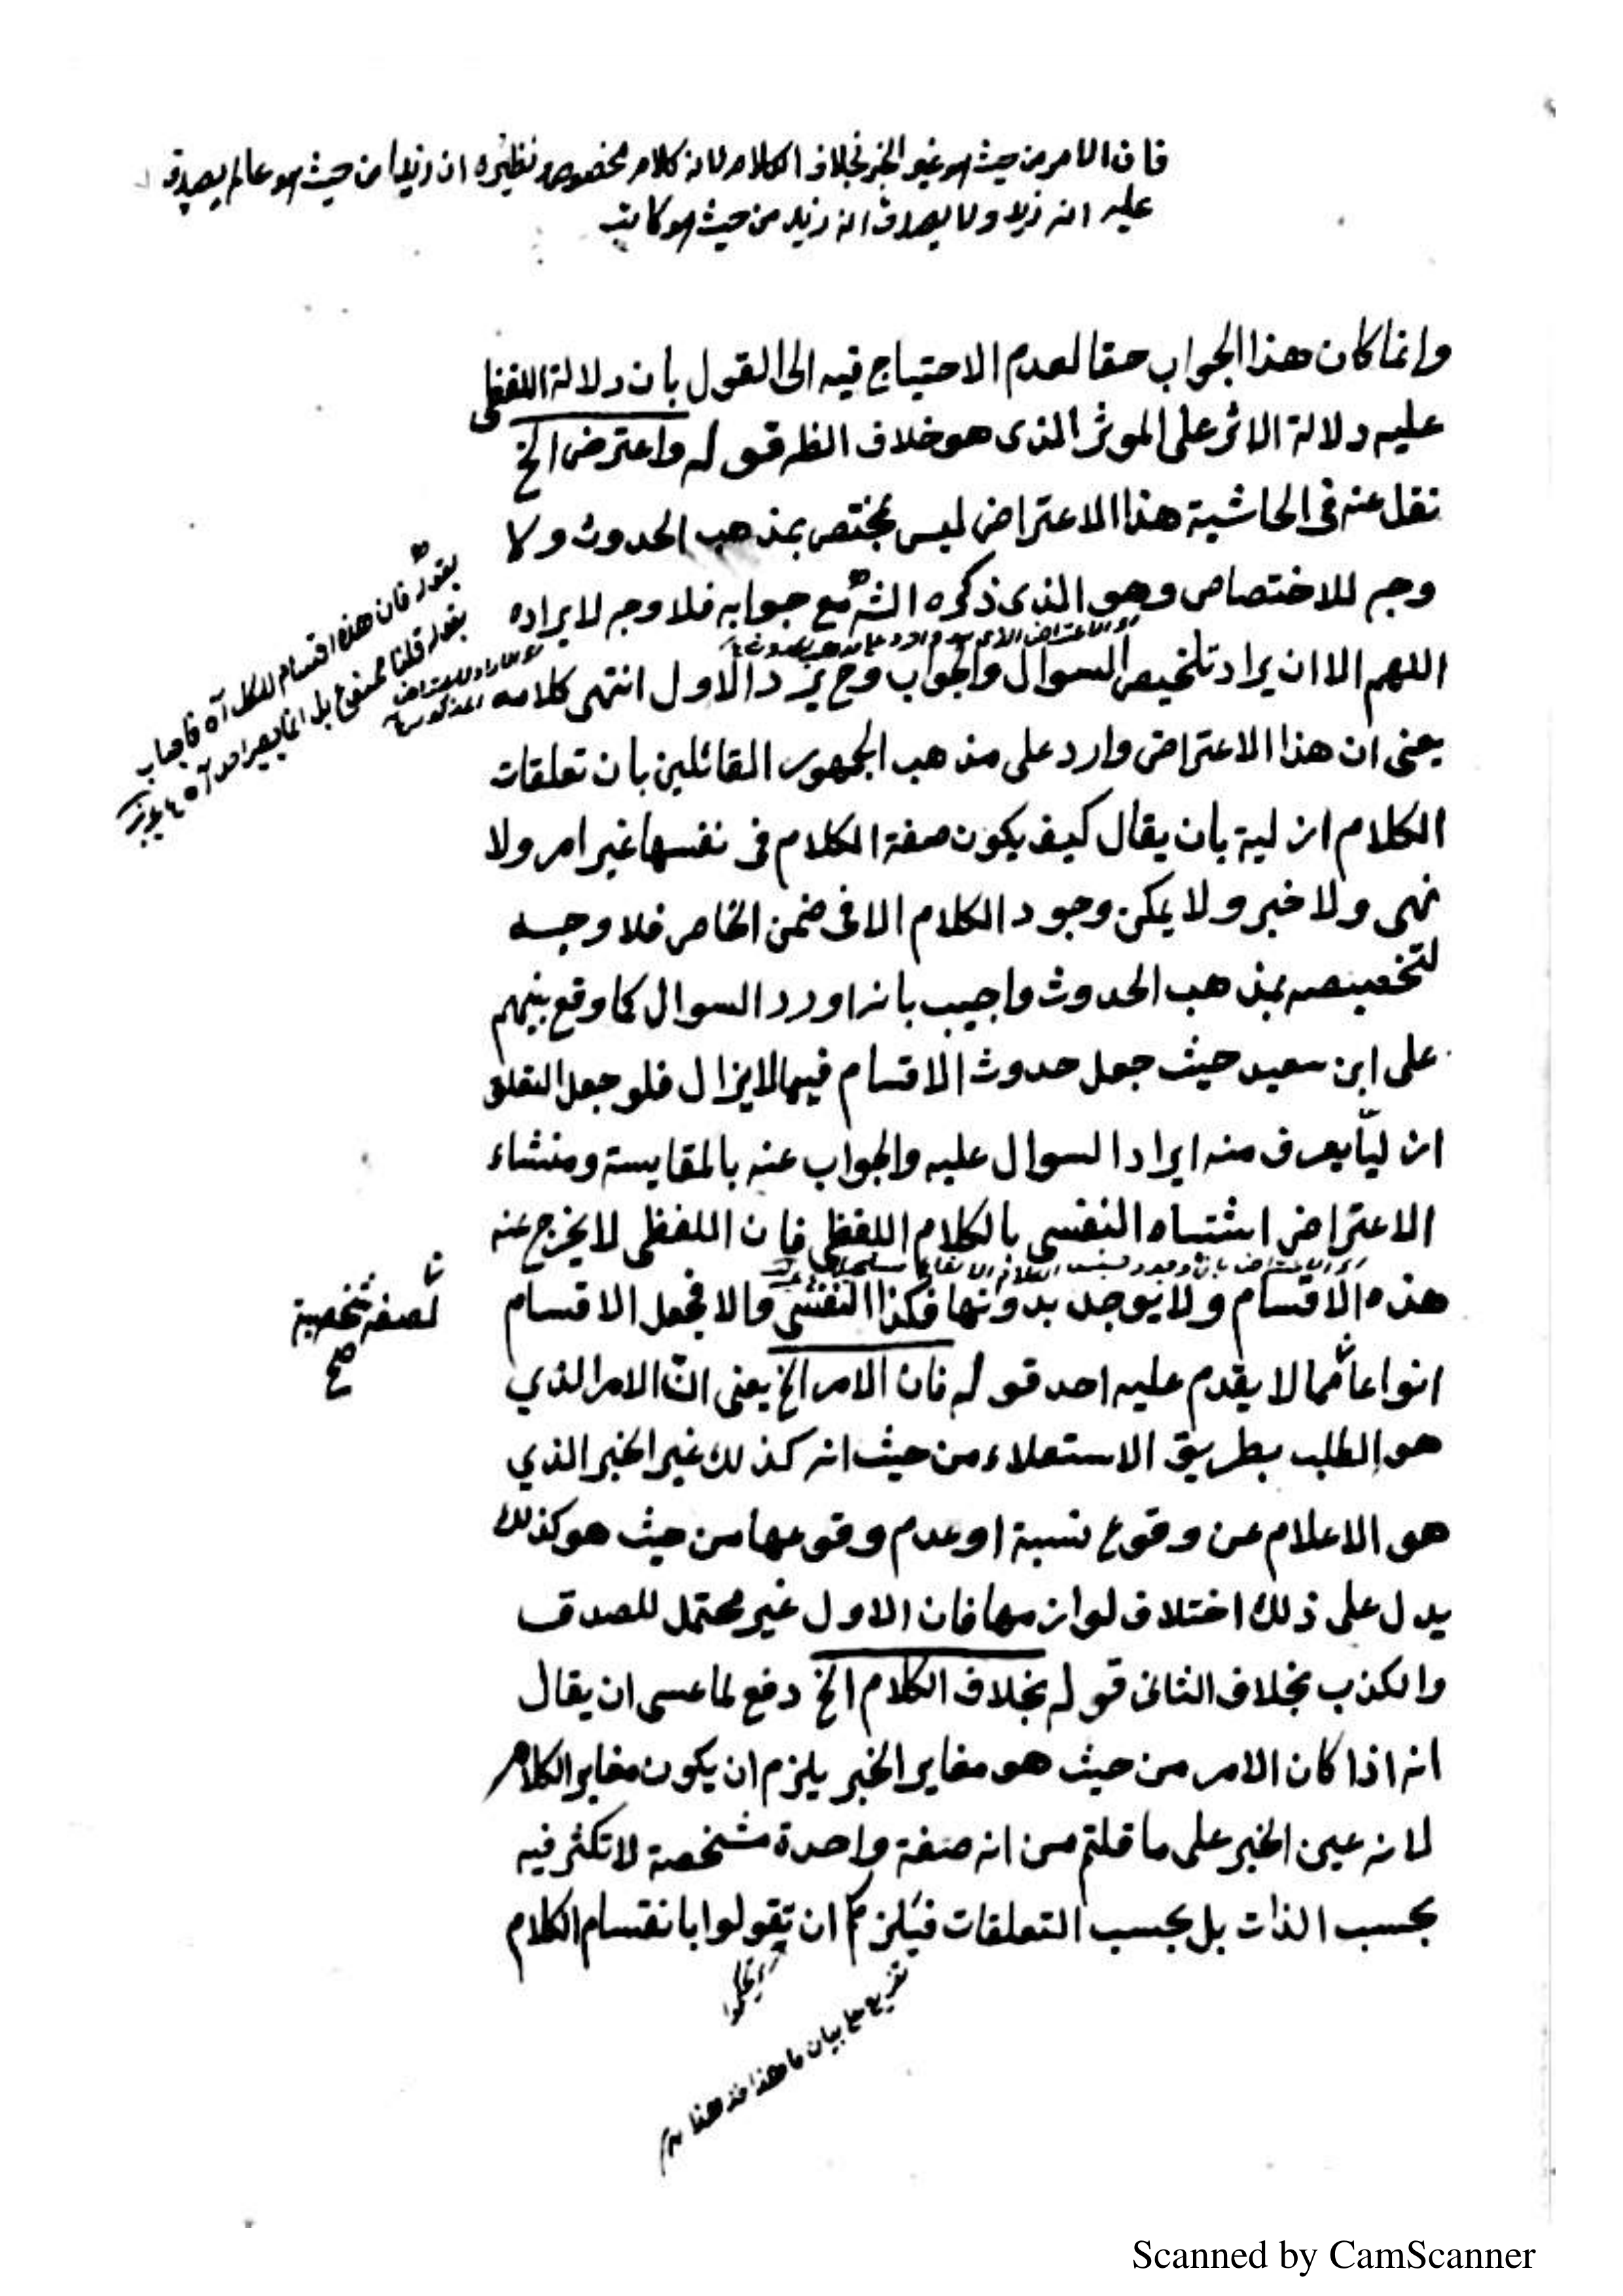 فان الامر من حيث هو غير الخبر بخلاف الكلام لانه كلام مخصوص ونظيره ان زيدا من حيث هو عالم يصدق
عليه انه زيد ولا يصدق انه زيد من حيث هو كاتب
وانما كان هذا الجواب حقا لعدم الاحتياج فيه الى القول بان دلالة اللفظى
عليه دلالة الاثر على الموثر الذى هو خلاف الظ قوله واعترض الخ
نقل عنه فى الحاشية هذا الاعتراض ليس بمختص بمذهب الحدوث ولا
وجه للاختصاص وهو الذى ذكره الش مع جوابه فلا وجه لايراده
اللهم الا ان يراد تلخيص السوال والجواب وح يرد الاول انتهى كلامه
يعنى ان هذا الاعتراض وارد على مذهب الجمهور القائلين بان تعلقات
الكلام ازلية بان يقال كيف يكون صفة الكلام فى نفسها غير امر ولا
نهى ولا خبر ولا يمكن وجود الكلام الا فى ضمن الخاص فلا وجه
لتخصيصه بمذهب الحدوث واجيب بانه اورد السوال كما وقع بينهم
على ابن سعيد حيث جعل حدوث الاقسام فيما لا يزال فلو جعل التعلق
ازليا يعرف منه ايراد السوال عليه والجواب عنه بالمقايسة ومنشاء
الاعتراض اشتباه النفسى بالكلام اللفظى فان اللفظى لا يخرج عنه
هذه الاقسام ولا يوجد بدونها فكذا النفسى والا فجعل الاقسام
انواعا مما لا يقدم عليه احد قوله فان الامر الخ يعنى ان الامر الذي
هو الطلب بطريق الاستعلاء من حيث انه كذلك غير الخبر الذي
هو الاعلام عن وقوع نسبة او عدم وقوعها من حيث هو كذلك
يدل على ذلك اختلاف لوازمها فان الاول غير محتمل للصدق
والكذب بخلاف الثانى قوله بخلاف الكلام الخ دفع لما عسى ان يقال
انه اذا كان الامر من حيث هو مغاير الخبر يلزم ان يكون مغاير الكلام
لانه عين الخبر على ما قلتم من انه صفة واحدة مشخصة لا تكثر فيه
بحسب الذات بل بحسب التعلقات فيلزمكم ان تقولوا بانقسام الكلام
بقوله فان هذه اقسام للكلام آه فاجاب
بقوله قلنا ممنوع بل انما يصير احد آه
لصفة شخصية
صح
تفريع على بيان
Scanned by CamScanner